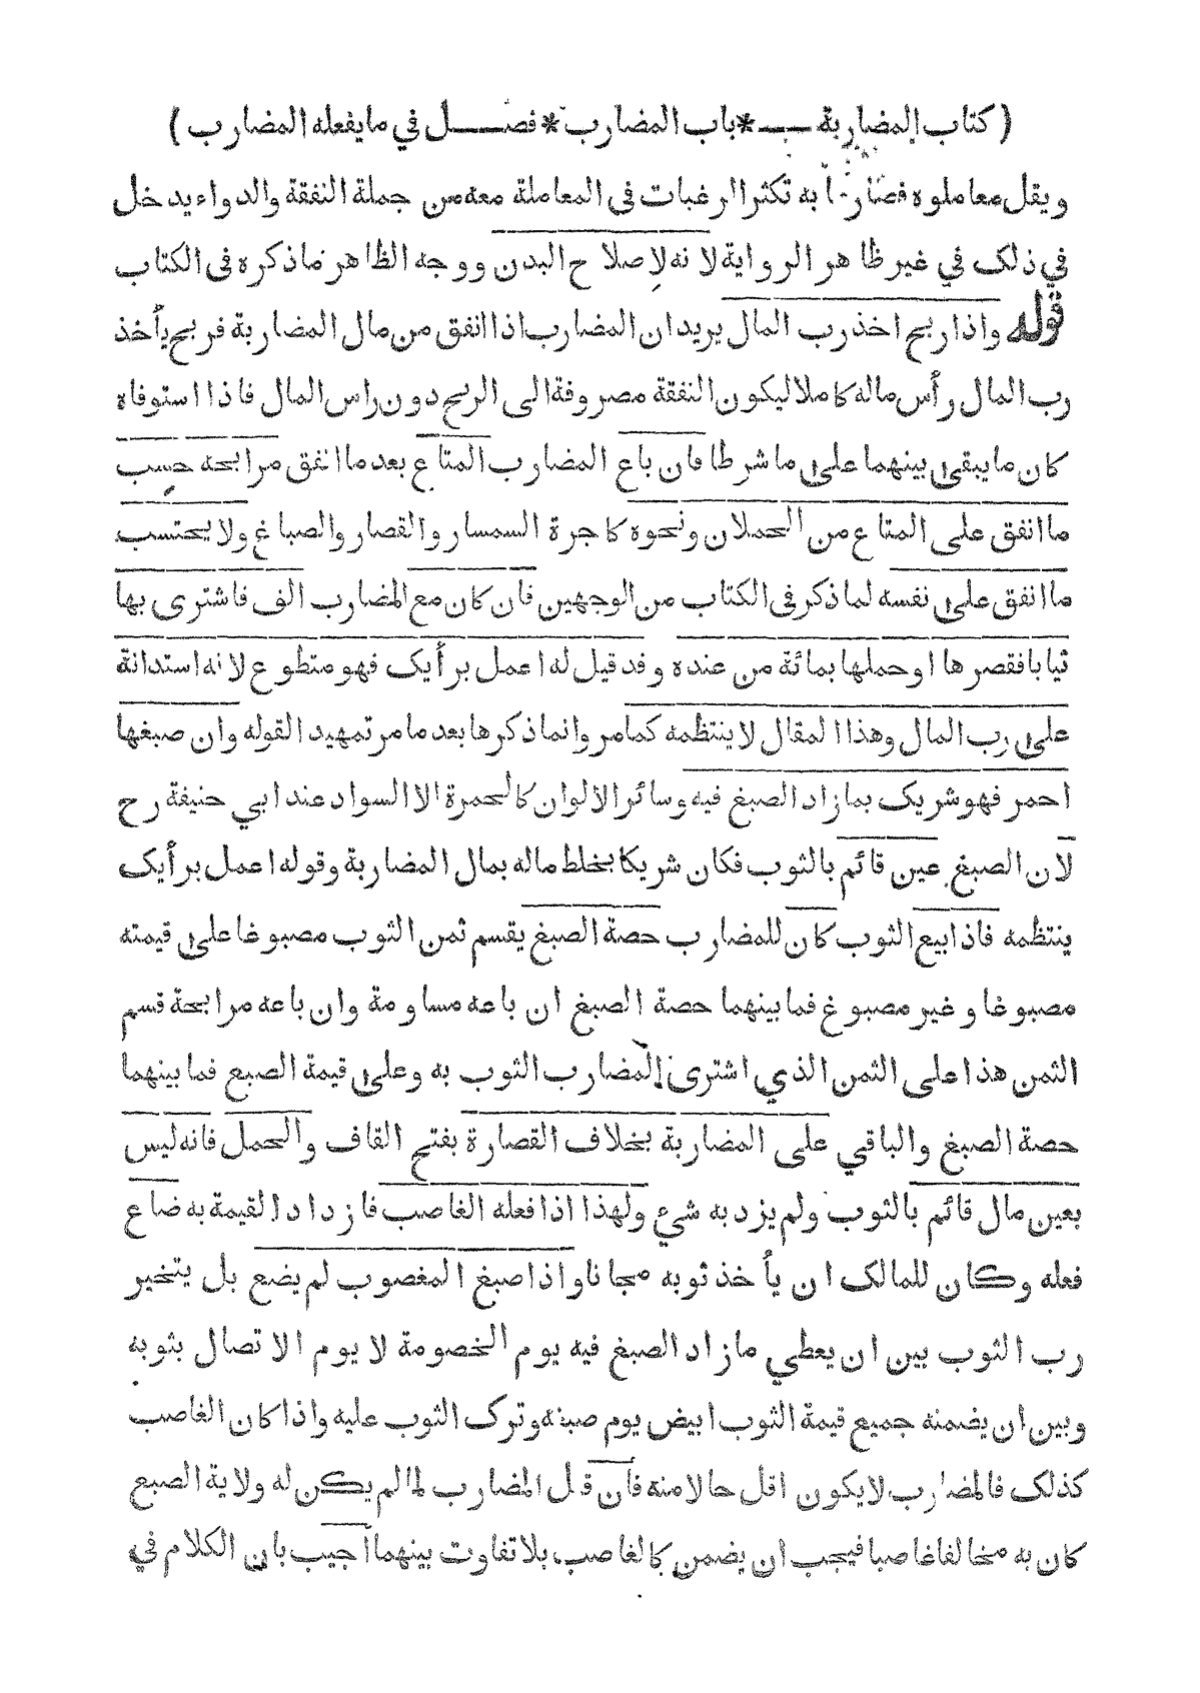 ( كتاب المضاربة — * باب المضارب * فصل في ما يفعله المضارب )
ويقل معاملوه فصار ما به تكثر الرغبات في المعاملة معه من جملة النفقة والدواء يدخل
في ذلك في غير ظاهر الرواية لانه لاصلاح البدن ووجه الظاهر ما ذكره في الكتاب
قوله واذا ربح اخذ رب المال يريد ان المضارب اذا انفق من مال المضاربة فربح يأخذ
رب المال رأس ماله كاملا ليكون النفقة مصروفة الى الربح دون راس المال فاذا استوفاه
كان ما يبقى بينهما على ما شرطا فان باع المضارب المتاع بعد ما انفق مرابحه حسب
ما انفق على المتاع من الحملان ونحوه كاجرة السمسار والقصار والصباغ ولا يحتسب
ما انفق على نفسه لما ذكر في الكتاب من الوجهين فان كان مع المضارب الف فاشترى بها
ثيابا فقصرها او حملها بمائة من عنده وقد قيل له اعمل برأيك فهو متطوع لانه استدانة
على رب المال وهذا المقال لا ينتظمه كما مر وانما ذكرها بعد ما مر تمهيدا لقوله وان صبغها
احمر فهو شريك بما زاد الصبغ فيه وسائر الالوان كالحمرة الا السواد عند ابي حنيفة رح
لان الصبغ عين قائم بالثوب فكان شريكا بخلط ماله بمال المضاربة وقوله اعمل برأيك
ينتظمه فاذا بيع الثوب كان للمضارب حصة الصبغ يقسم ثمن الثوب مصبوغا على قيمته
مصبوغا وغير مصبوغ فما بينهما حصة الصبغ ان باعه مساومة وان باعه مرابحة قسم
الثمن هذا على الثمن الذي اشترى المضارب الثوب به وعلى قيمة الصبع فما بينهما
حصة الصبغ والباقي على المضاربة بخلاف القصارة بفتح القاف والحمل فانه ليس
بعين مال قائم بالثوب ولم يزد به شيء ولهذا اذا فعله الغاصب فازداد القيمة به ضاع
فعله وكان للمالك ان يأخذ ثوبه مجانا واذا صبغ المغصوب لم يضع بل يتخير
رب الثوب بين ان يعطي ما زاد الصبغ فيه يوم الخصومة لا يوم الاتصال بثوبه
وبين ان يضمنه جميع قيمة الثوب ابيض يوم صبغه وترك الثوب عليه واذا كان الغاصب
كذلك فالمضارب لا يكون اقل حالا منه فأن قيل المضارب لما لم يكن له ولاية الصبع
كان به مخالفا غاصبا فيجب ان يضمن كالغاصب بلا تفاوت بينهما اجيب بان الكلام في